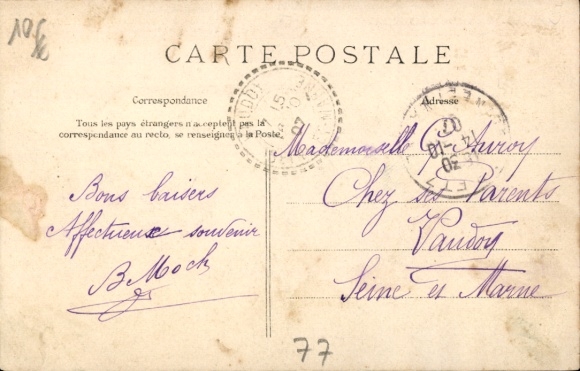 CARTE POSTALE
Correspondance
Adresse
Tous les pays étrangers n'acceptent pas la
correspondance au recto, se renseigner à la Poste.
Mademoiselle C. Auroy
Chez ses Parents
Vaudoy
Seine et Marne
Bons baisers
Affectueux souvenir
B Moch
77